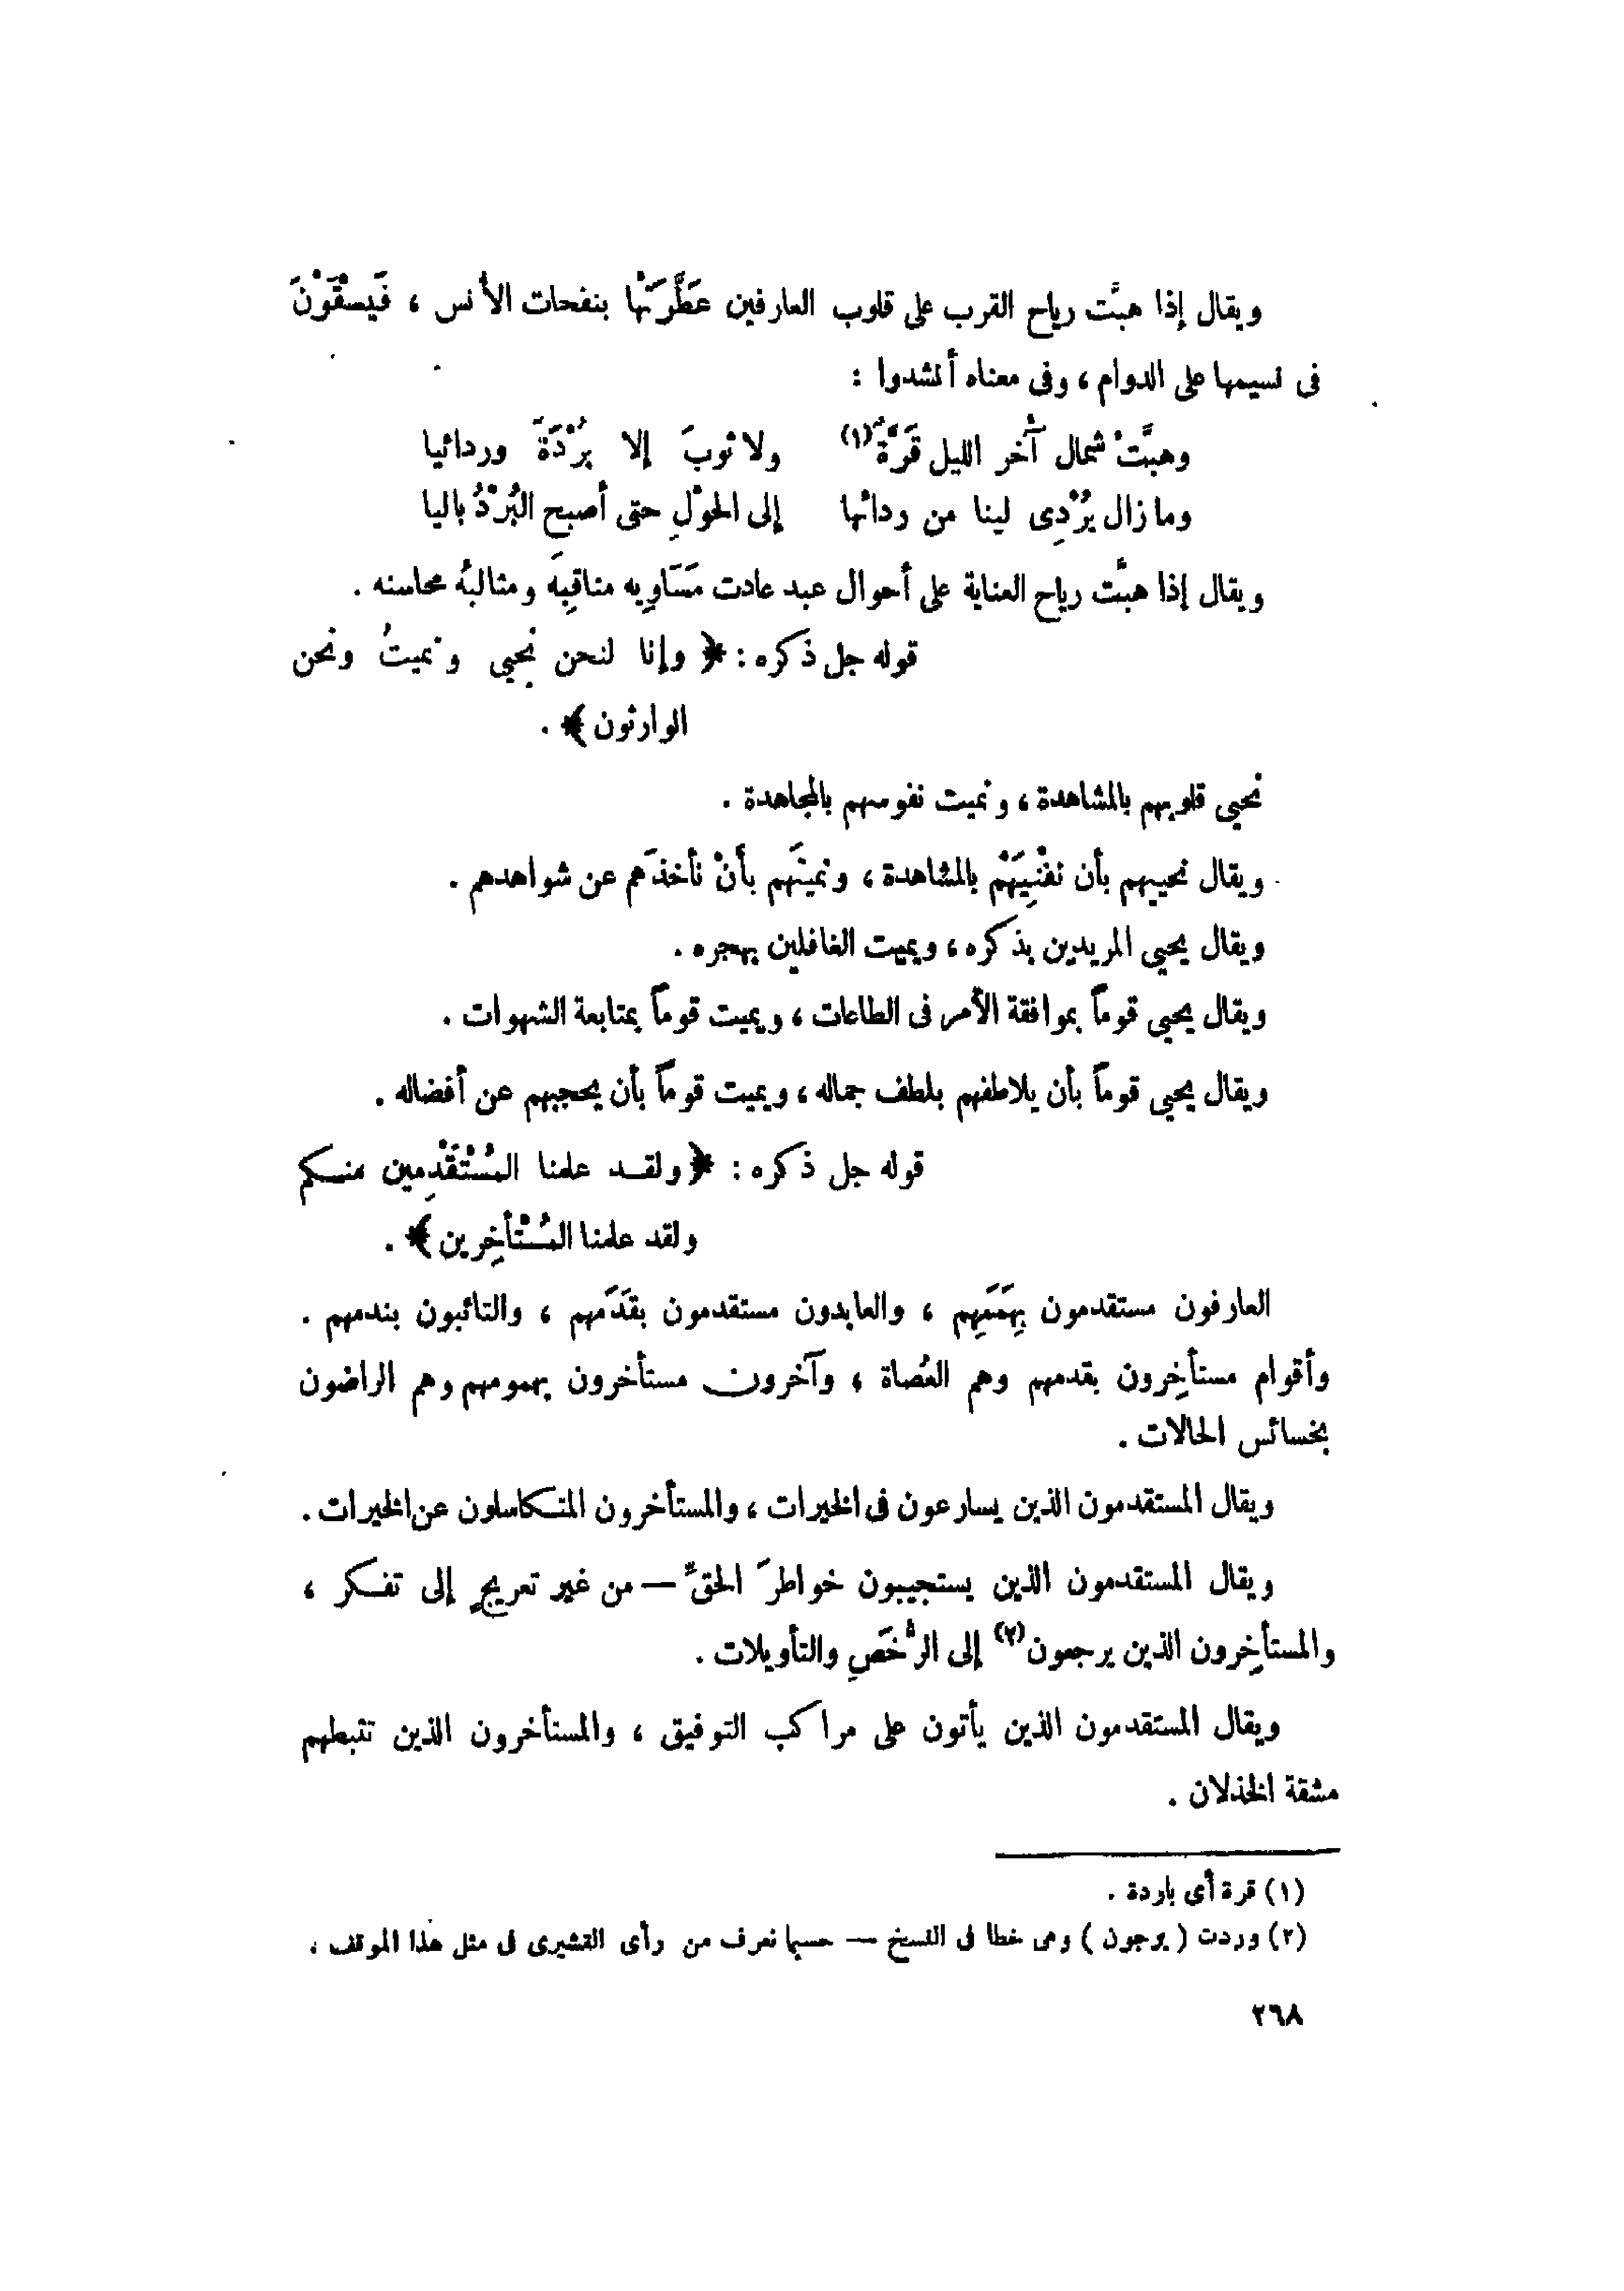 ويقال إذا هبَّت رياح القرب على قلوب العارفين عَطَّرَتْها بنفحات الأنس ، فَيسقَوْنَ
فى نسيمها على الدوام ، وفى معناه أنشدوا :
وهبَّتْ شمال آخر الليل قَرَّةٌ (١) ولا ثوبَ إلا بُرْدَةَ وردائيا
وما زال بُرْدِى لينا من ردائها إلى الحوْلِ حتى أصبح البُرْدُ باليا
ويقال إذا هبَّت رياح العناية على أحوال عبد عادت مَسَاوِيه مناقبِهَ ومثالبُه محاسنه .
قوله جل ذكره : ﴿ وإنا لنحن نُحيى ونميتُ ونحن
الوارثون ﴾ .
نحيى قلوبهم بالمشاهدة ، ونميت نفوسهم بالمجاهدة .
ويقال نحييهم بأن نفْنِيَهُمْ بالمشاهدة ، ونميتَهم بأنْ نأخذَهم عن شواهدهم .
ويقال يحيى المريدين بذكره ، ويميت الغافلين بهجره .
ويقال يحيى قوماً بموافقة الأمر فى الطاعات ، ويميت قوماً بمتابعة الشهوات .
ويقال يحيى قوماً بأن يلاطفهم بلطف جماله ، ويميت قوماً بأن يحجبهم عن أفضاله .
قوله جل ذكره : ﴿ ولقد علمنا المُسْتَقْدِمين منكم
ولقد علمنا المُسْتأخِرين ﴾ .
العارفون مستقدمون بِهِمَمَهِم ، والعابدون مستقدمون بقَدَمهم ، والتائبون بندمهم .
وأقوام مستأخِرون بقدمهم وهم العُصاة ، وآخرون مستأخرون بهمومهم وهم الراضون
بخسائس الحالات .
ويقال المستقدمون الذين يسارعون فى الخيرات ، والمستأخرون المتكاسلون عن الخيرات .
ويقال المستقدمون الذين يستجيبون خواطرَ الحقِّ — من غير تعريجٍ إلى تفكر ،
والمستأخِرون الذين يرجعون (٢) إلى الرُّخَصِ والتأويلات .
ويقال المستقدمون الذين يأتون على مراكب التوفيق ، والمستأخرون الذين تثبطهم
مشقة الخذلان .
(١) قرة أى باردة .
(٢) وردت ( يرجون ) وهى خطا فى النسخ — حسبما نعرف من رأى القشيرى فى مثل هذا الموقف .
٢٦٨